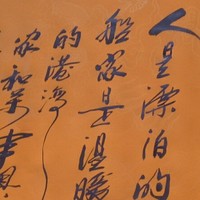 人是漂泊的
船家是温暖
的港湾
家和万事兴